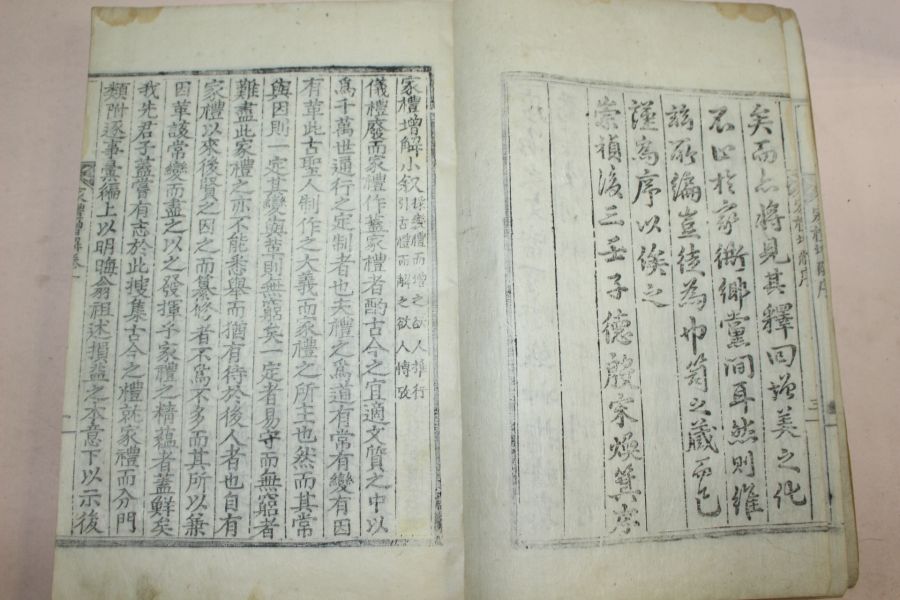 矣而亦將見其釋回增美之化
不止於家衖鄉黨間耳然則維
玆所編豈徒為巾笥之藏而已
謹為序以俟之
崇禎後三壬子德殷宋煥箕序
家禮增解小敘採變禮而增之欲人推行
引古禮而解之欲人博攷
儀禮廢而家禮作蓋家禮者酌古今之宜適文質之中以
爲千萬世通行之定制者也夫禮之爲道有常有變有因
有革此古聖人制作之大義而家禮之所主也然而其常
與因則一定其變與革則無窮矣一定者易守而無窮者
難盡此家禮之亦不能悉舉而猶有待於後人者也自有
家禮以來後賢之因之而纂修者不爲不多而其所以兼
因革該常變而盡之以之發揮乎家禮之精蘊者蓋鮮矣
我先君子蓋嘗有志於此搜集古今之禮就家禮而分門
類附逐事彙編上以明晦翁祖述損益之本意下以示後
家禮增解卷一